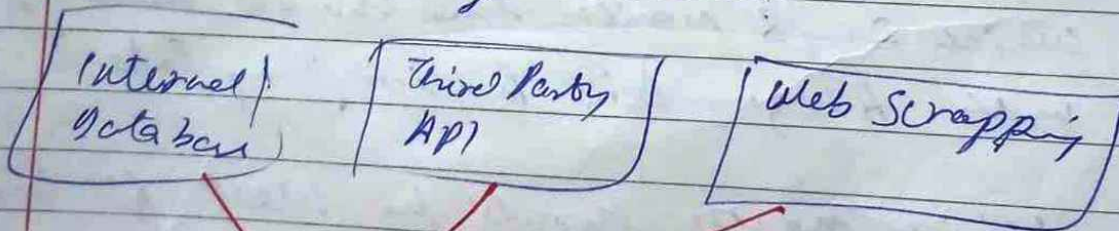 Internal
Database
Third Party
API
Web Scrapping